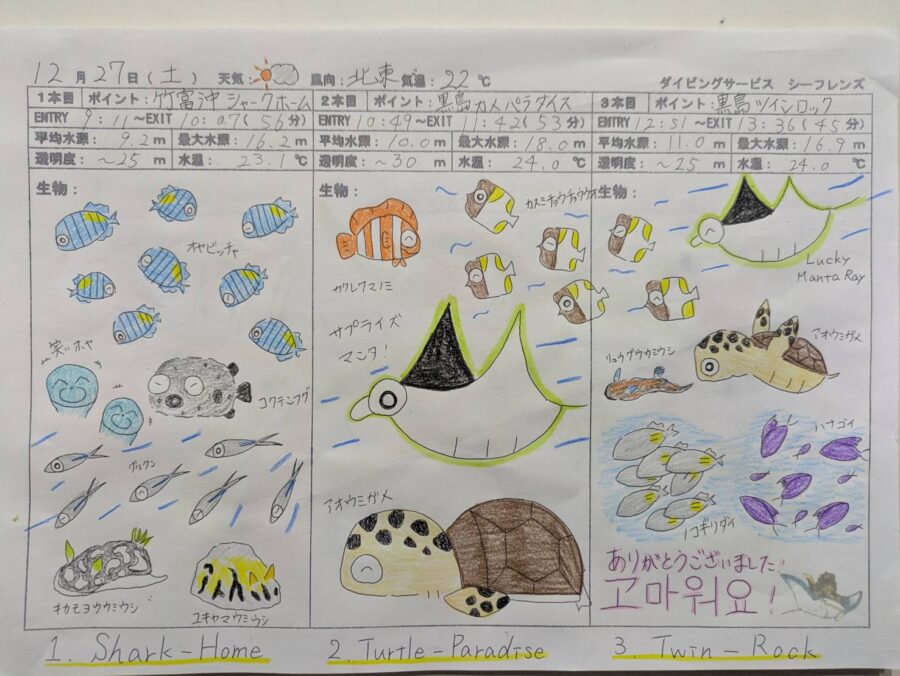 12月27日(土) 天気: 風向:北東 気温:22℃
ダイビングサービス シーフレンズ
1本目 ポイント:竹富沖シャークホーム
ENTRY 9:11~EXIT 10:07(56分)
平均水深: 9.2m 最大水深:16.2m
透明度:~25m 水温: 23.1℃
生物:
オヤビッチャ
笑ッホヤ
コクテンフグ
グルクン
キカモヨウウミウシ
ユキヤマウミウシ
1. Shark-Home
2本目 ポイント:黒島カメパラダイス
ENTRY 10:49~EXIT 11:42(53分)
平均水深:10.0m 最大水深:18.0m
透明度:~30m 水温:24.0℃
生物:
カスミチョウチョウウオ
カクレクマノミ
サプライズ
マンタ!
アオウミガメ
2. Turtle-Paradise
3本目 ポイント:黒島ツインロック
ENTRY 12:51~EXIT 13:36(45分)
平均水深:11.0m 最大水深:16.9m
透明度:~25m 水温:24.0℃
生物:
Lucky
Manta Ray
アオウミガメ
リュウグウウミウシ
ハナゴイ
ノコギリダイ
ありがとうございました!
고마워요!
3. Twin-Rock